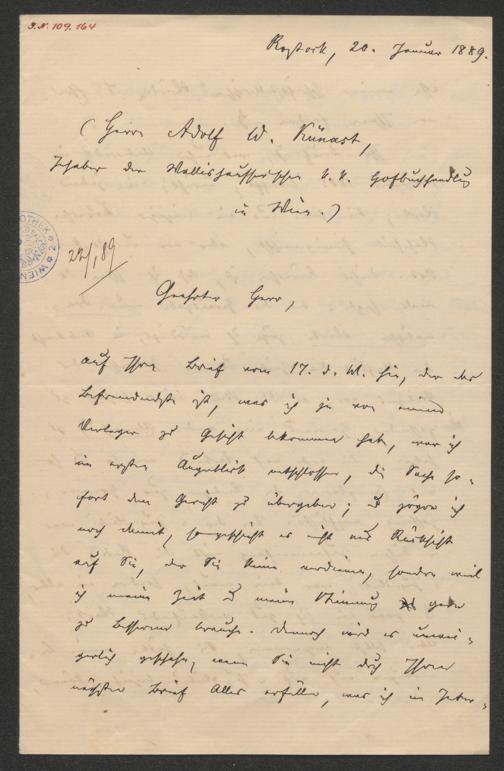 J.N. 109.164
Rostock, 20. Januar 1889.
(Herrn Adolf W. Künast,
Inhaber der Wallishausserischen k. k. Hofbuchhandlung
in Wien.)
22/1 89
Geehrter Herr,
auf Ihren Brief vom 17. d. M. hin, der das
Befremdendste ist, was ich je von einem
Verleger zu Gesicht bekommen habe, war ich
im ersten Augenblick entschlossen, die Sache so-
fort dem Gericht zu übergeben; u zögre ich
noch damit, so geschieht es nicht aus Rücksicht
auf Sie, der Sie keine verdienen, sondern weil
ich meine Zeit u meine Stimmung zu
zu Besserem brauche. Dennoch wird es unwei-
gerlich geschehn, wenn Sie nicht durch Ihren
nächsten Brief Alles erfüllen, was ich im